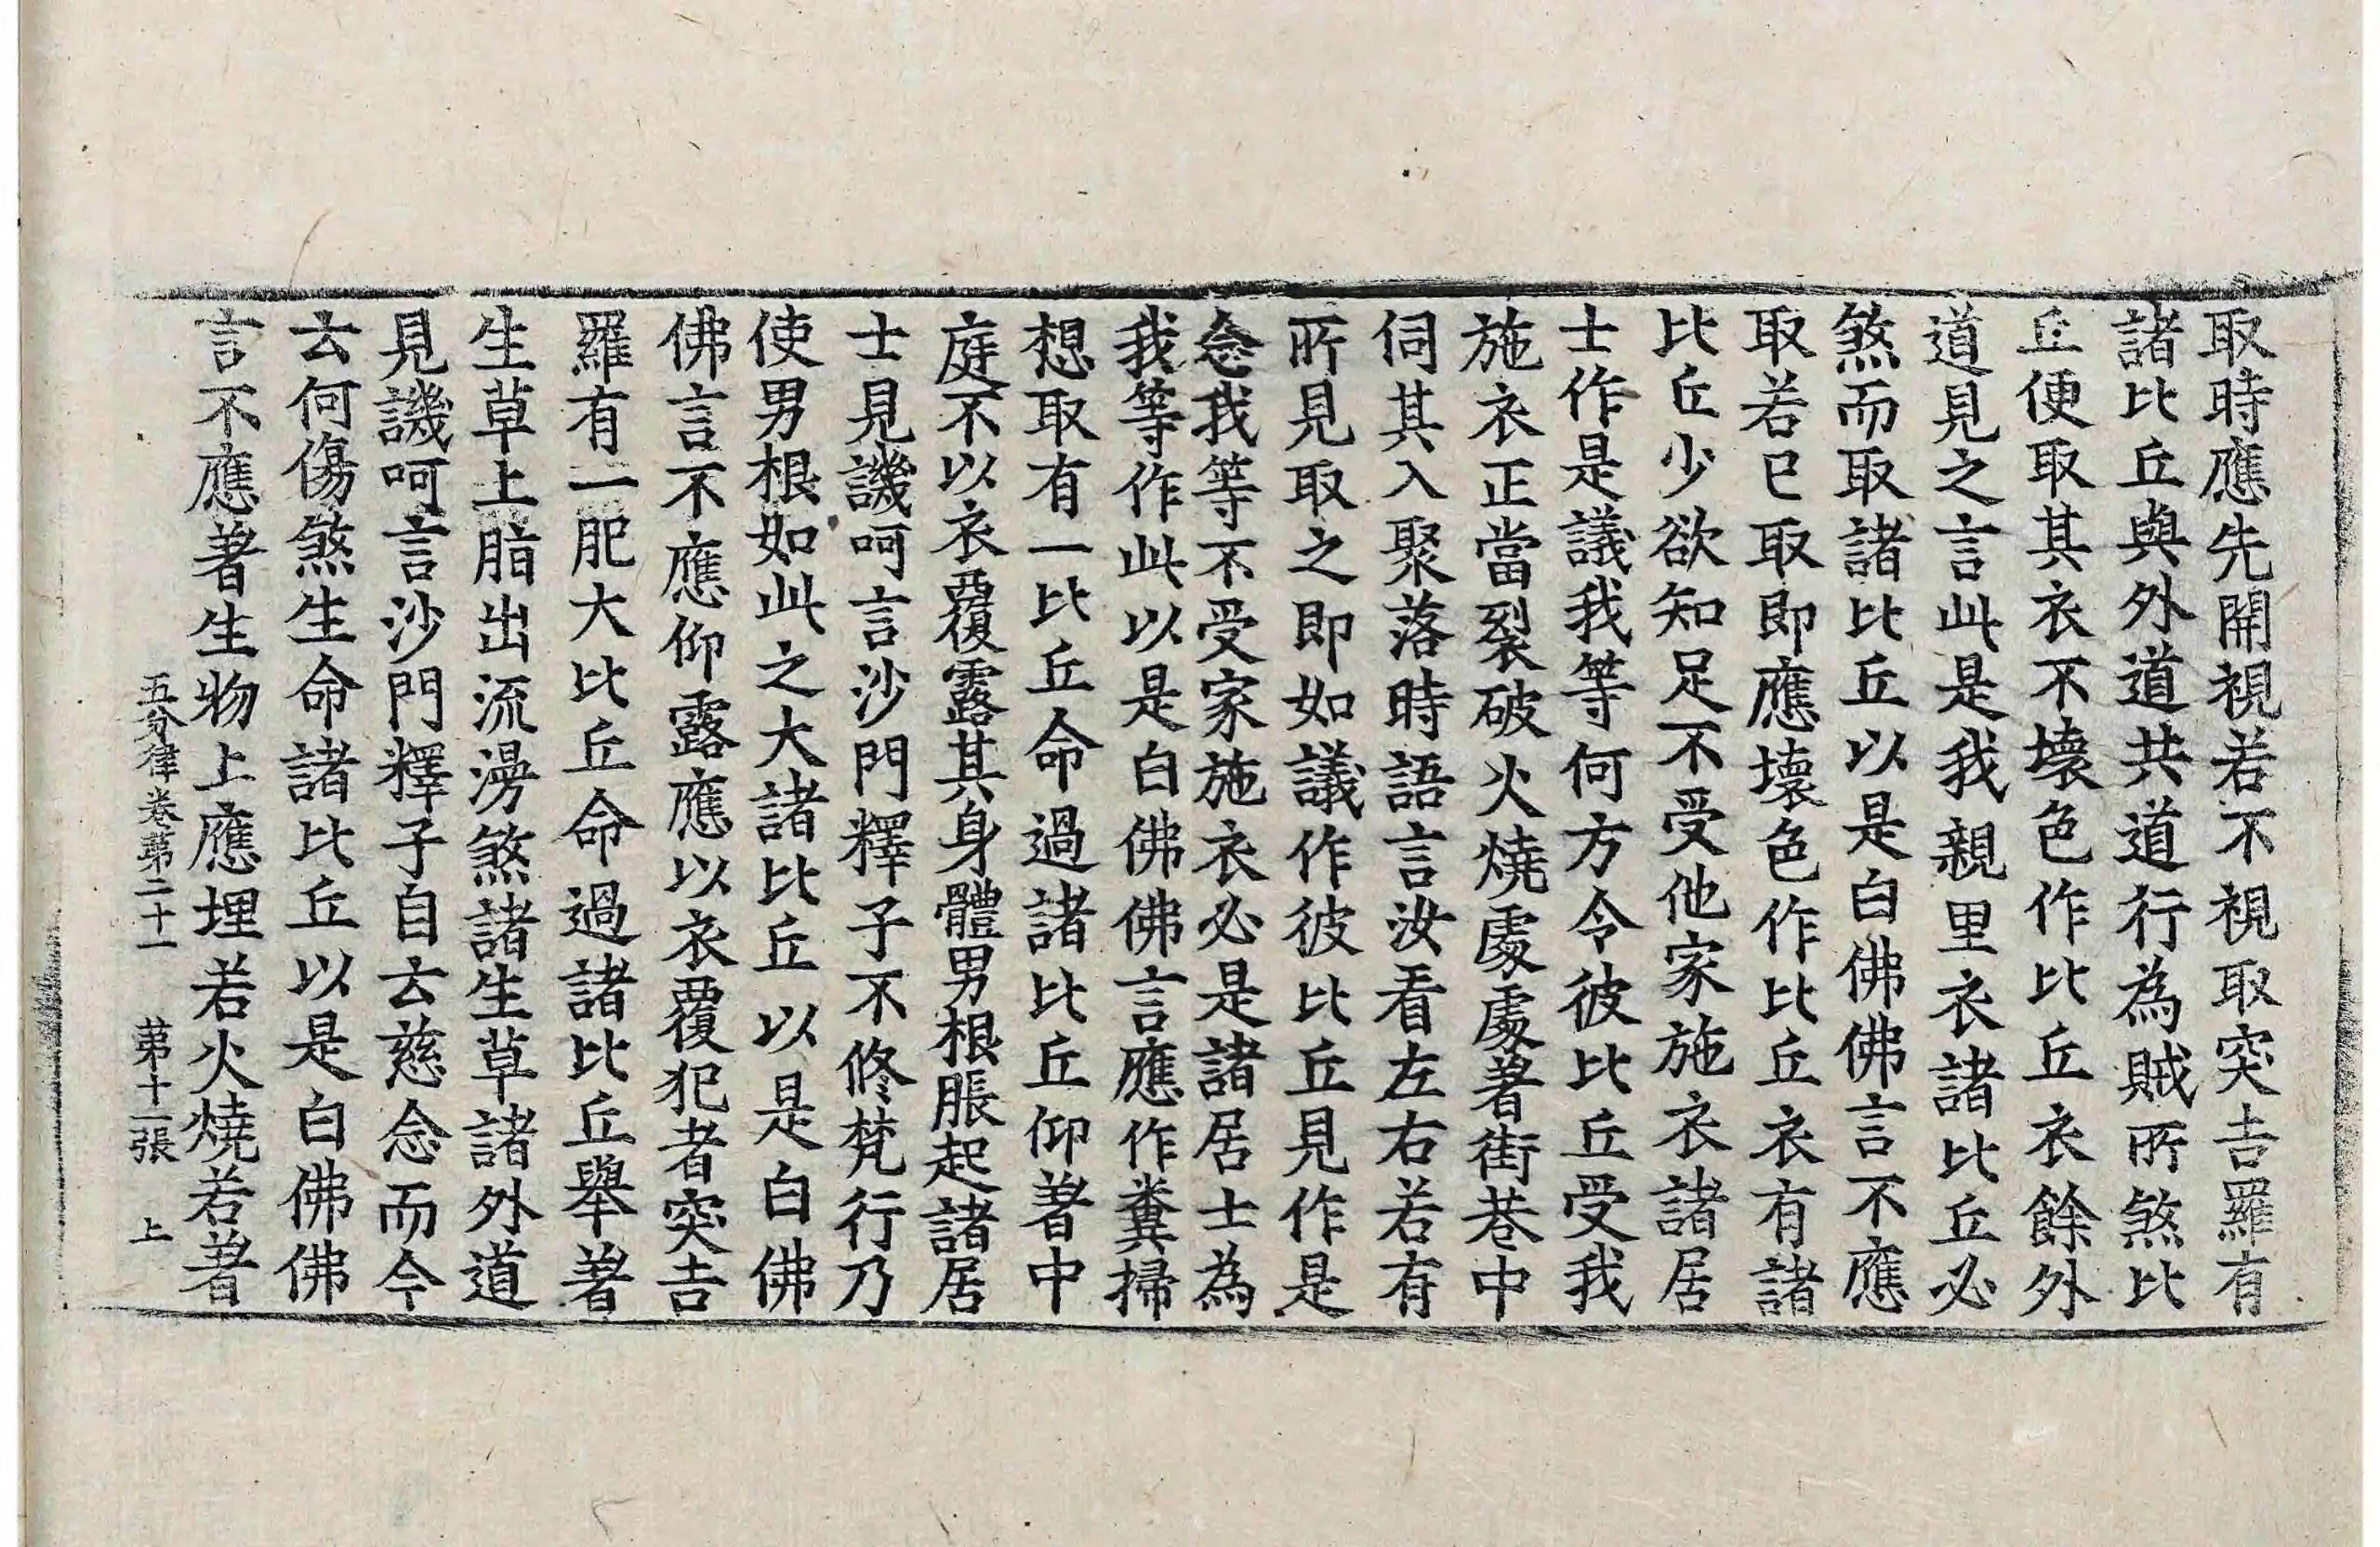 取時應先開視若不視取突吉羅有
諸比丘與外道共道行為賊所煞比
丘便取其衣不壞色作比丘衣餘外
道見之言此是我親里衣諸比丘必
煞而取諸比丘以是白佛佛言不應
取若已取即應壞色作比丘衣有諸
比丘少欲知足不受他家施衣諸居
士作是議我等何方令彼比丘受我
施衣正當裂破火燒處處著街巷中
伺其入聚落時語言汝看左右若有
所見取之即如議作彼比丘見作是
念我等不受家施衣必是諸居士為
我等作此以是白佛佛言應作糞掃
想取有一比丘命過諸比丘仰著中
庭不以衣覆露其身體男根脹起諸居
士見譏呵言沙門釋子不修梵行乃
使男根如此之大諸比丘以是白佛
佛言不應仰露應以衣覆犯者突吉
羅有一肥大比丘命過諸比丘轝著
生草上脂出流澇煞諸生草諸外道
見譏呵言沙門釋子自云慈念而今
云何傷煞生命諸比丘以是白佛佛
言不應著生物上應埋若火燒若著
五分律卷第二十一 第十二張 上